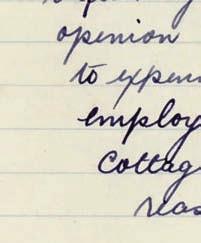 openion
to expen
employ
Cottag
reas